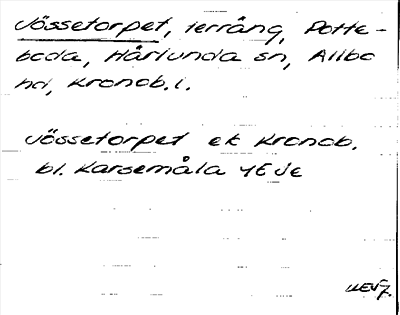 Jössetorpet, terräng, Potte-
boda, Hårlunda sn, Allbo
hd, Kronob. l.
Jössetorpet ek Kronob.
bl. Karsemåla 4E Je